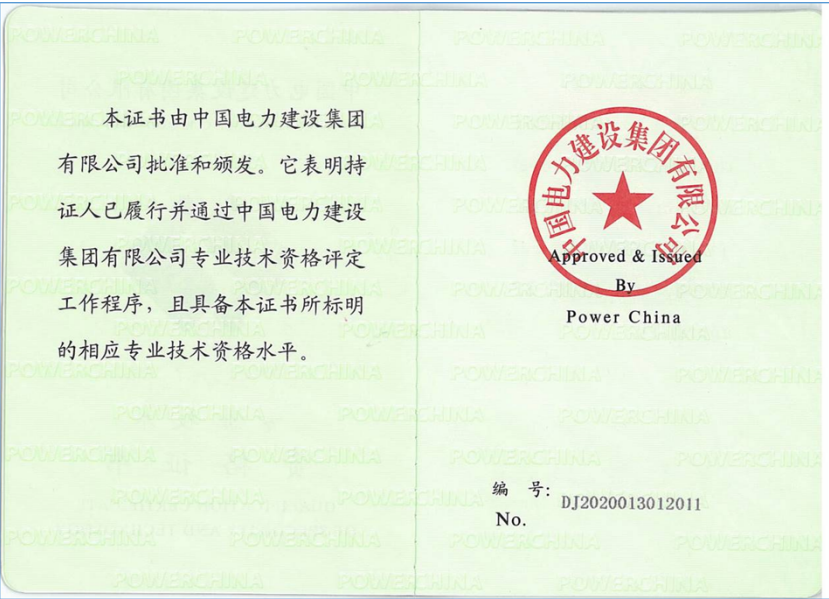 本证书由中国电力建设集团
有限公司批准和颁发。它表明持
证人已履行并通过中国电力建设
集团有限公司专业技术资格评定
工作程序，且具备本证书所标明
的相应专业技术资格水平。
中国电力建设集团有限公司
Approved & Issued
By
Power China
编 号:
DJ2020013012011
No.
POWERCHINA